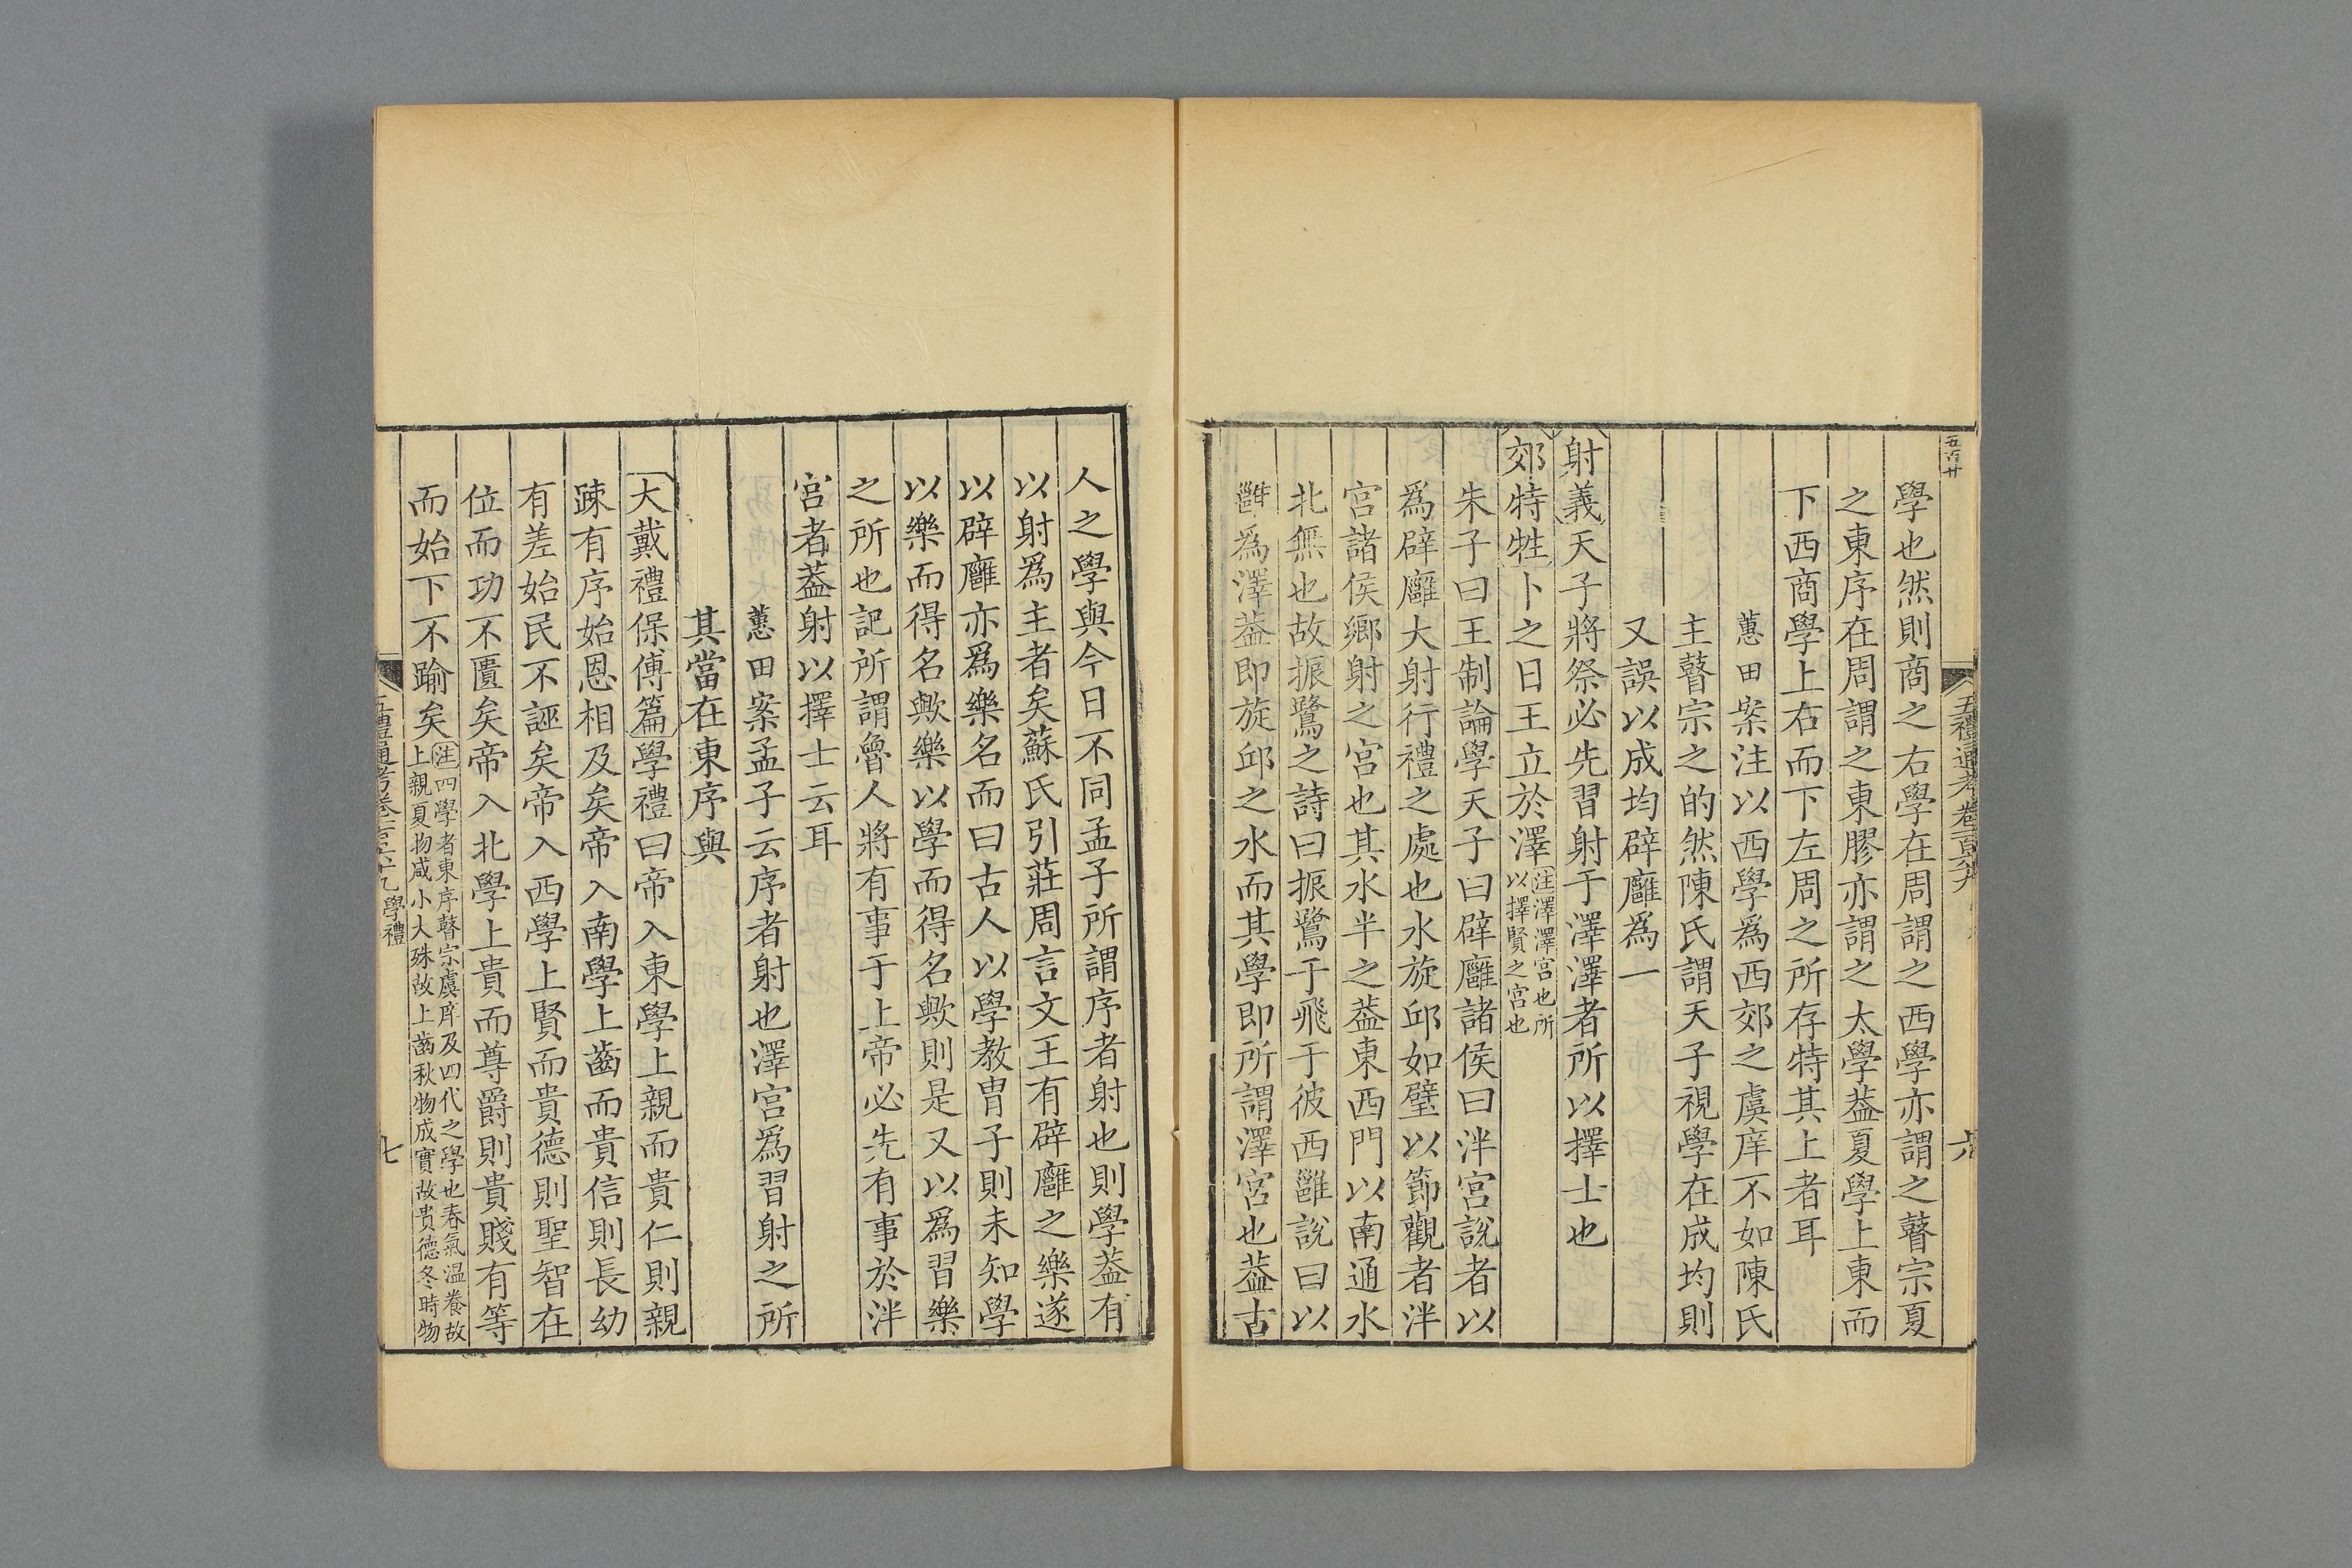 學也然則商之右學在周謂之西學亦謂之瞽宗夏
之東序在周謂之東膠亦謂之太學葢夏學上東而
下西商學上右而下左周之所存特其上者耳
蕙田案注以西學爲西郊之虞庠不如陳氏
主瞽宗之的然陳氏謂天子視學在成均則
又誤以成均辟廱爲一
射義天子將祭必先習射于澤澤者所以擇士也
郊特牲卜之日王立於澤注澤澤宮也所以擇賢之宮也
朱子曰王制論學天子曰辟廱諸侯曰泮宮說者以
爲辟廱大射行禮之處也水旋邱如璧以節觀者泮
宮諸侯鄉射之宮也其水半之葢東西門以南通水
北無也故振鷺之詩曰振鷺于飛于彼西雝說曰以
雝爲澤葢即旋邱之水而其學即所謂澤宮也葢古
人之學與今日不同孟子所謂序者射也則學葢有
以射爲主者矣蘇氏引莊周言文王有辟廱之樂遂
以辟廱亦爲樂名而曰古人以學教胄子則未知學
以樂而得名歟樂以學而得名歟則是又以爲習樂
之所也記所謂魯人將有事于上帝必先有事於泮
宮者葢射以擇士云耳
蕙田案孟子云序者射也澤宮爲習射之所
其當在東序與
大戴禮保傅篇學禮曰帝入東學上親而貴仁則親
疎有序始恩相及矣帝入南學上齒而貴信則長幼
有差始民不誣矣帝入西學上賢而貴德則聖智在
位而功不匱矣帝入北學上貴而尊爵則貴賤有等
而始下不踰矣注四學者東序瞽宗虞庠及四代之學也春氣温養故上親夏物咸小大殊故上齒秋物成實故貴德冬時物
五禮通考卷 學禮
七